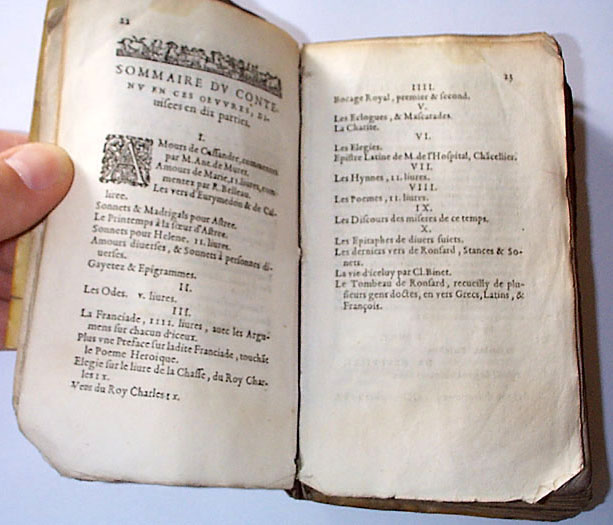 22
SOMMAIRE DV CONTE-
NV EN CES OEVVRES, DI-
uisees en dix parties.
I.
AMours de Cassandre, commentees
par M. Ant. de Muret.
Amours de Marie, 11. liures, com-
mentez par R. Belleau.
Les vers d'Eurymedon & de Cal-
liree.
Sonnets & Madrigals pour Astree.
Le Printemps à la sœur d'Astree.
Sonnets pour Helene. 11. liures.
Amours diuerses, & Sonnets à personnes di-
uerses.
Gayetez & Epigrammes.
II.
Les Odes. v. liures.
III.
La Franciade, 1111. liures, auec les Argu-
mens sur chacun d'iceux.
Plus vne Preface sur ladite Franciade, touchãt
le Poeme Heroique.
Elegie sur le liure de la Chasse, du Roy Char-
les 1x.
Vers du Roy Charles 1x.
23
IIII.
Bocage Royal, premier & second.
V.
Les Eclogues, & Mascarades.
La Charite.
VI.
Les Elegies.
Epistre Latine de M. de l'Hospital, Chãcellier.
VII.
Les Hynnes, 11. liures.
VIII.
Les Poemes, 11. liures.
IX.
Les Discours des miseres de ce temps.
X.
Les Epitaphes de diuers suiets.
Les derniers vers de Ronsard, Stances & So-
nets.
La vie d'iceluy par Cl. Binet.
Le Tombeau de Ronsard, recueilly de plu-
sieurs gens doctes, en vers Grecs, Latins, &
François.